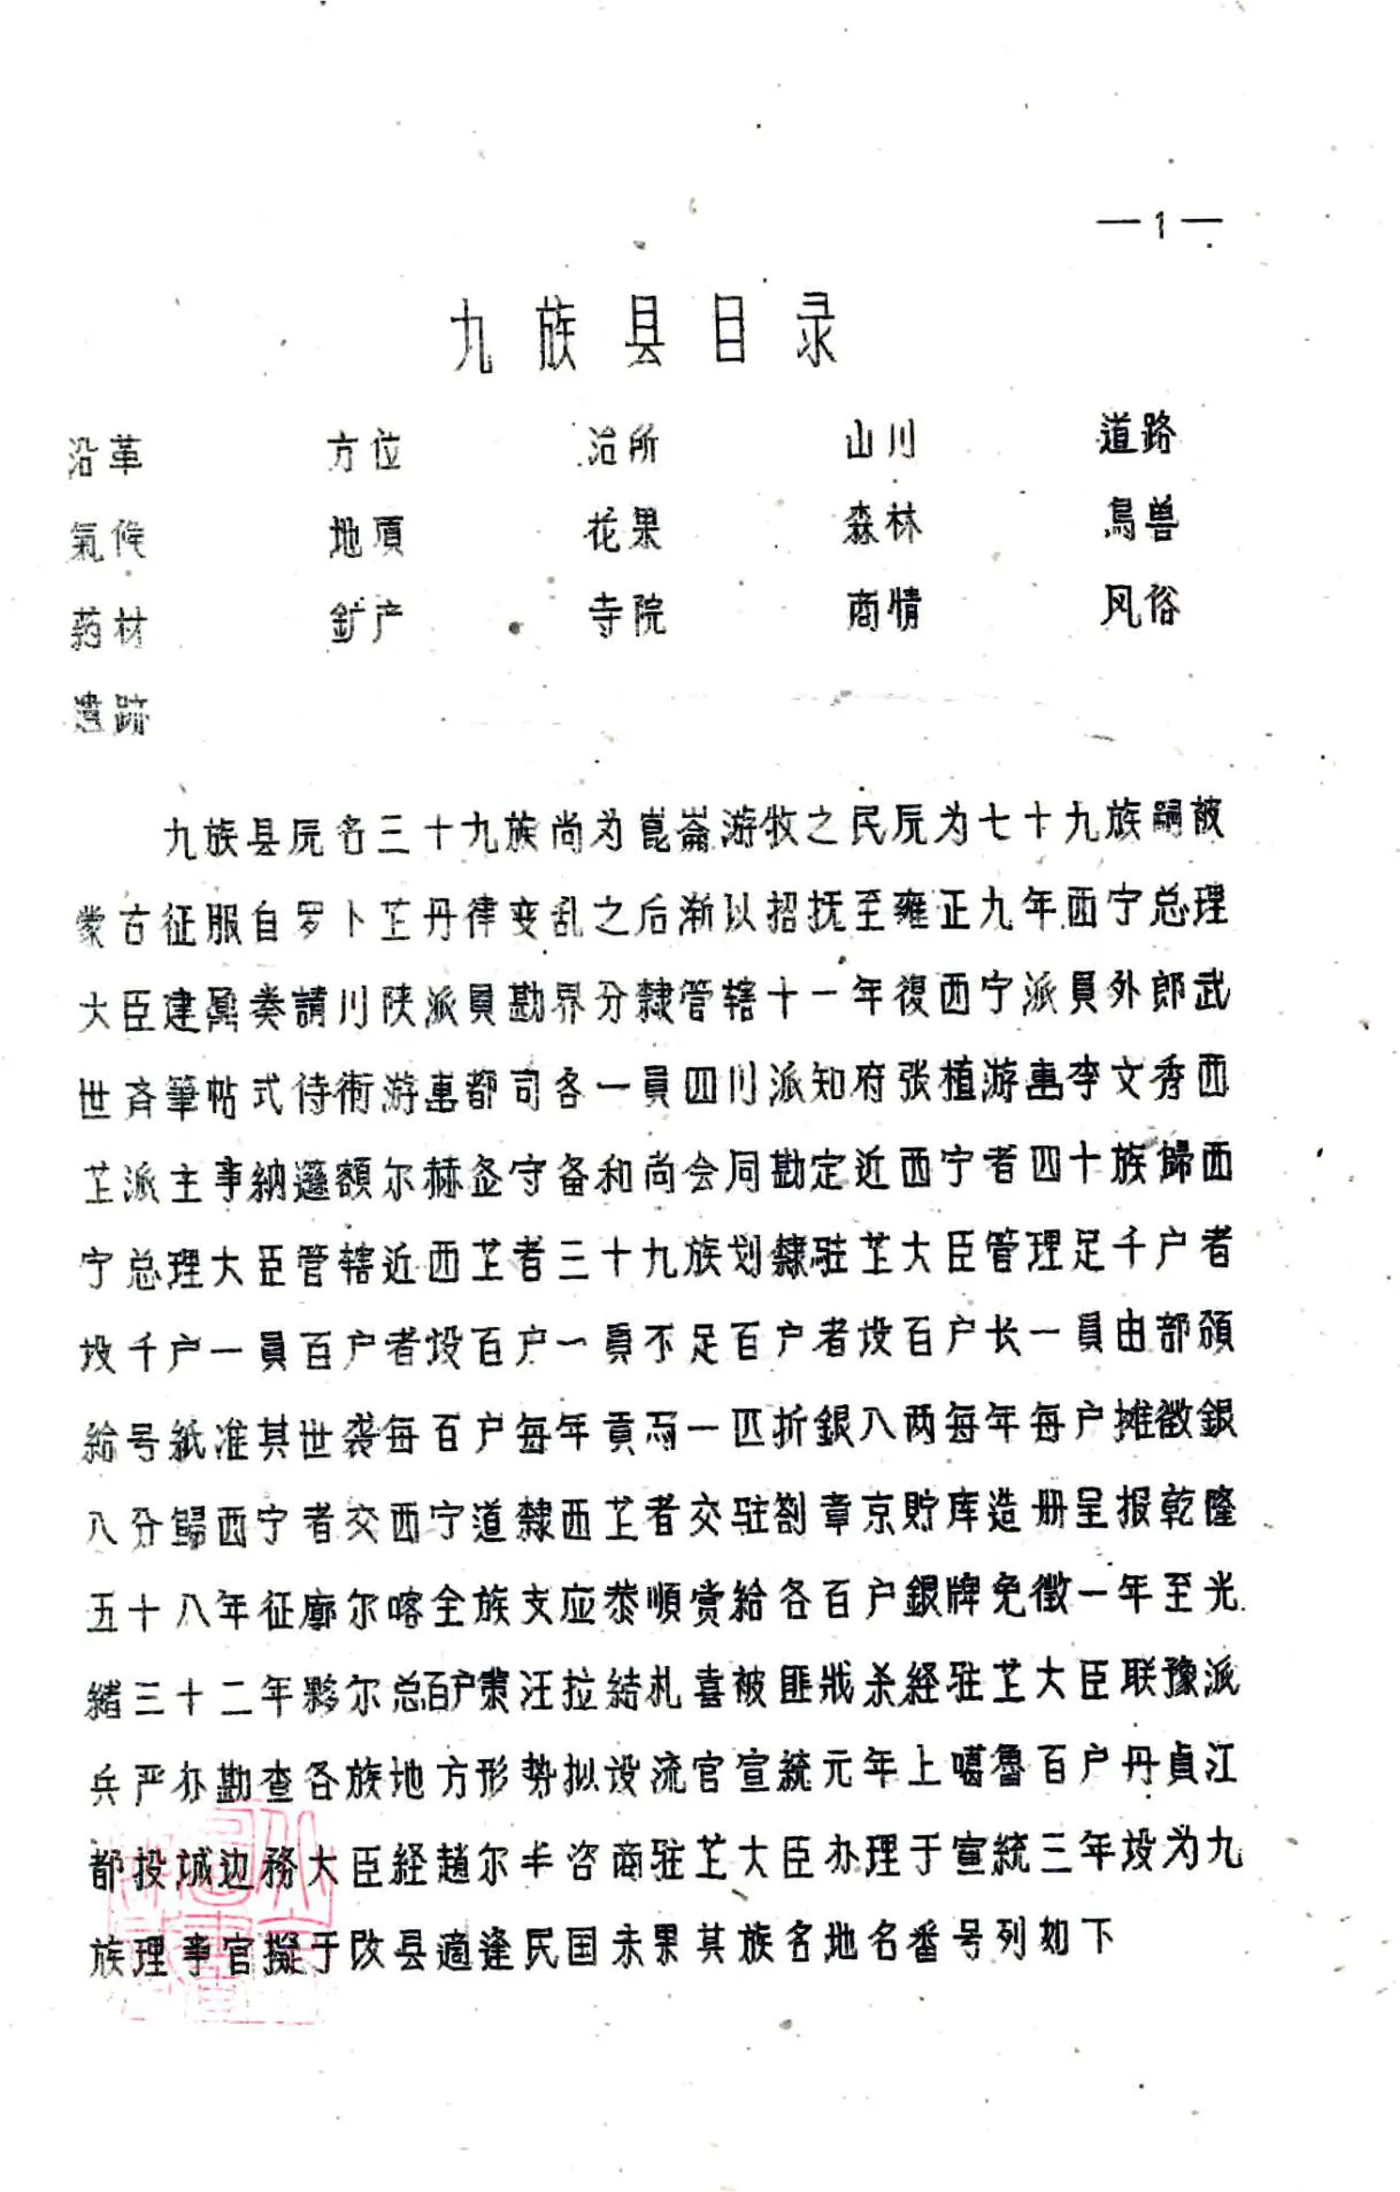 —1—
九族县目录
沿革 方位 治所 山川 道路
氣候 地項 花果 森林 鳥兽
药材 釸产 寺院 商情 风俗
遗跡
九族县原名三十九族尚为崑崙游牧之民原为七十九族嗣被
蒙古征服自罗卜芷丹律变乱之后渐以招抚至雍正九年西宁总理
大臣建鼐奏請川陕派員勘界分隸管辖十一年復西宁派員外郎武
世斉筆帖式侍衛游惠都司各一員四川派知府张植游惠李文秀西
芷派主事納遜額尔赫金守备和尚会同勘定近西宁者四十族歸西
宁总理大臣管辖近西芷者三十九族划隸驻芷大臣管理足千户者
设千户一員百户者设百户一員不足百户者设百户长一員由部頒
給号紙准其世袭每百户每年貢馬一匹折銀八两每年每户摊徵銀
八分歸西宁者交西宁道隸西芷者交驻劄章京貯库造册呈报乾隆
五十八年征廓尔喀全族支应恭順赏給各百户銀牌免徵一年至光
緒三十二年夥尔总百户策汪拉結札喜被匪戕杀経驻芷大臣联豫派
兵严办勘查各族地方形势拟设流官宣統元年上噶魯百户丹貞江
都投誠边務大臣経趙尔丰咨商驻芷大臣办理于宣統三年设为九
族理事官擬于改县適逢民国未果其族名地名番号列如下